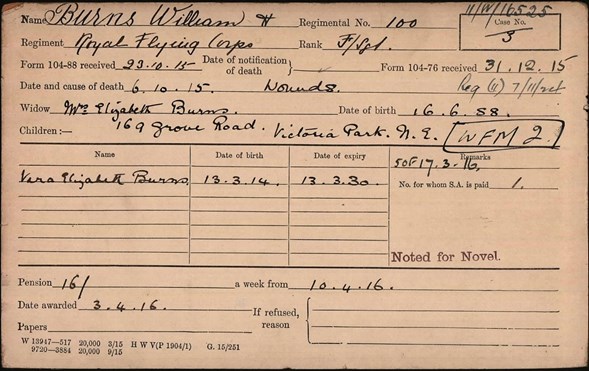 Name Burns William H Regimental No. 100 11/W/16525
Case No.
3
Regiment Royal Flying Corps Rank F/Sgt.
Form 104-88 received 23.10.15 Date of notification of death} Form 104-76 received 31.12.15
Date and cause of death 6.10.15. Wounds. Reg (11) 7/11/
Widow Mrs Elizabeth Burns. Date of birth 16.6.88.
Children:— 169 Grove Road. Victoria Park. N.E. WFM 2.
Name Date of birth Date of expiry Remarks
SOF 17.3.16.
Vera Elizabeth Burns. 13.3.14. 13.3.30. No. for whom S.A. is paid 1.
Noted for Novel.
Pension 16/ a week from 10.4.16.
Date awarded 3.4.16. If refused, reason {
Papers
W 13947—517 20,000 3/15 H W V(P 1904/1) G. 15/251
9720—3884 20,000 9/15